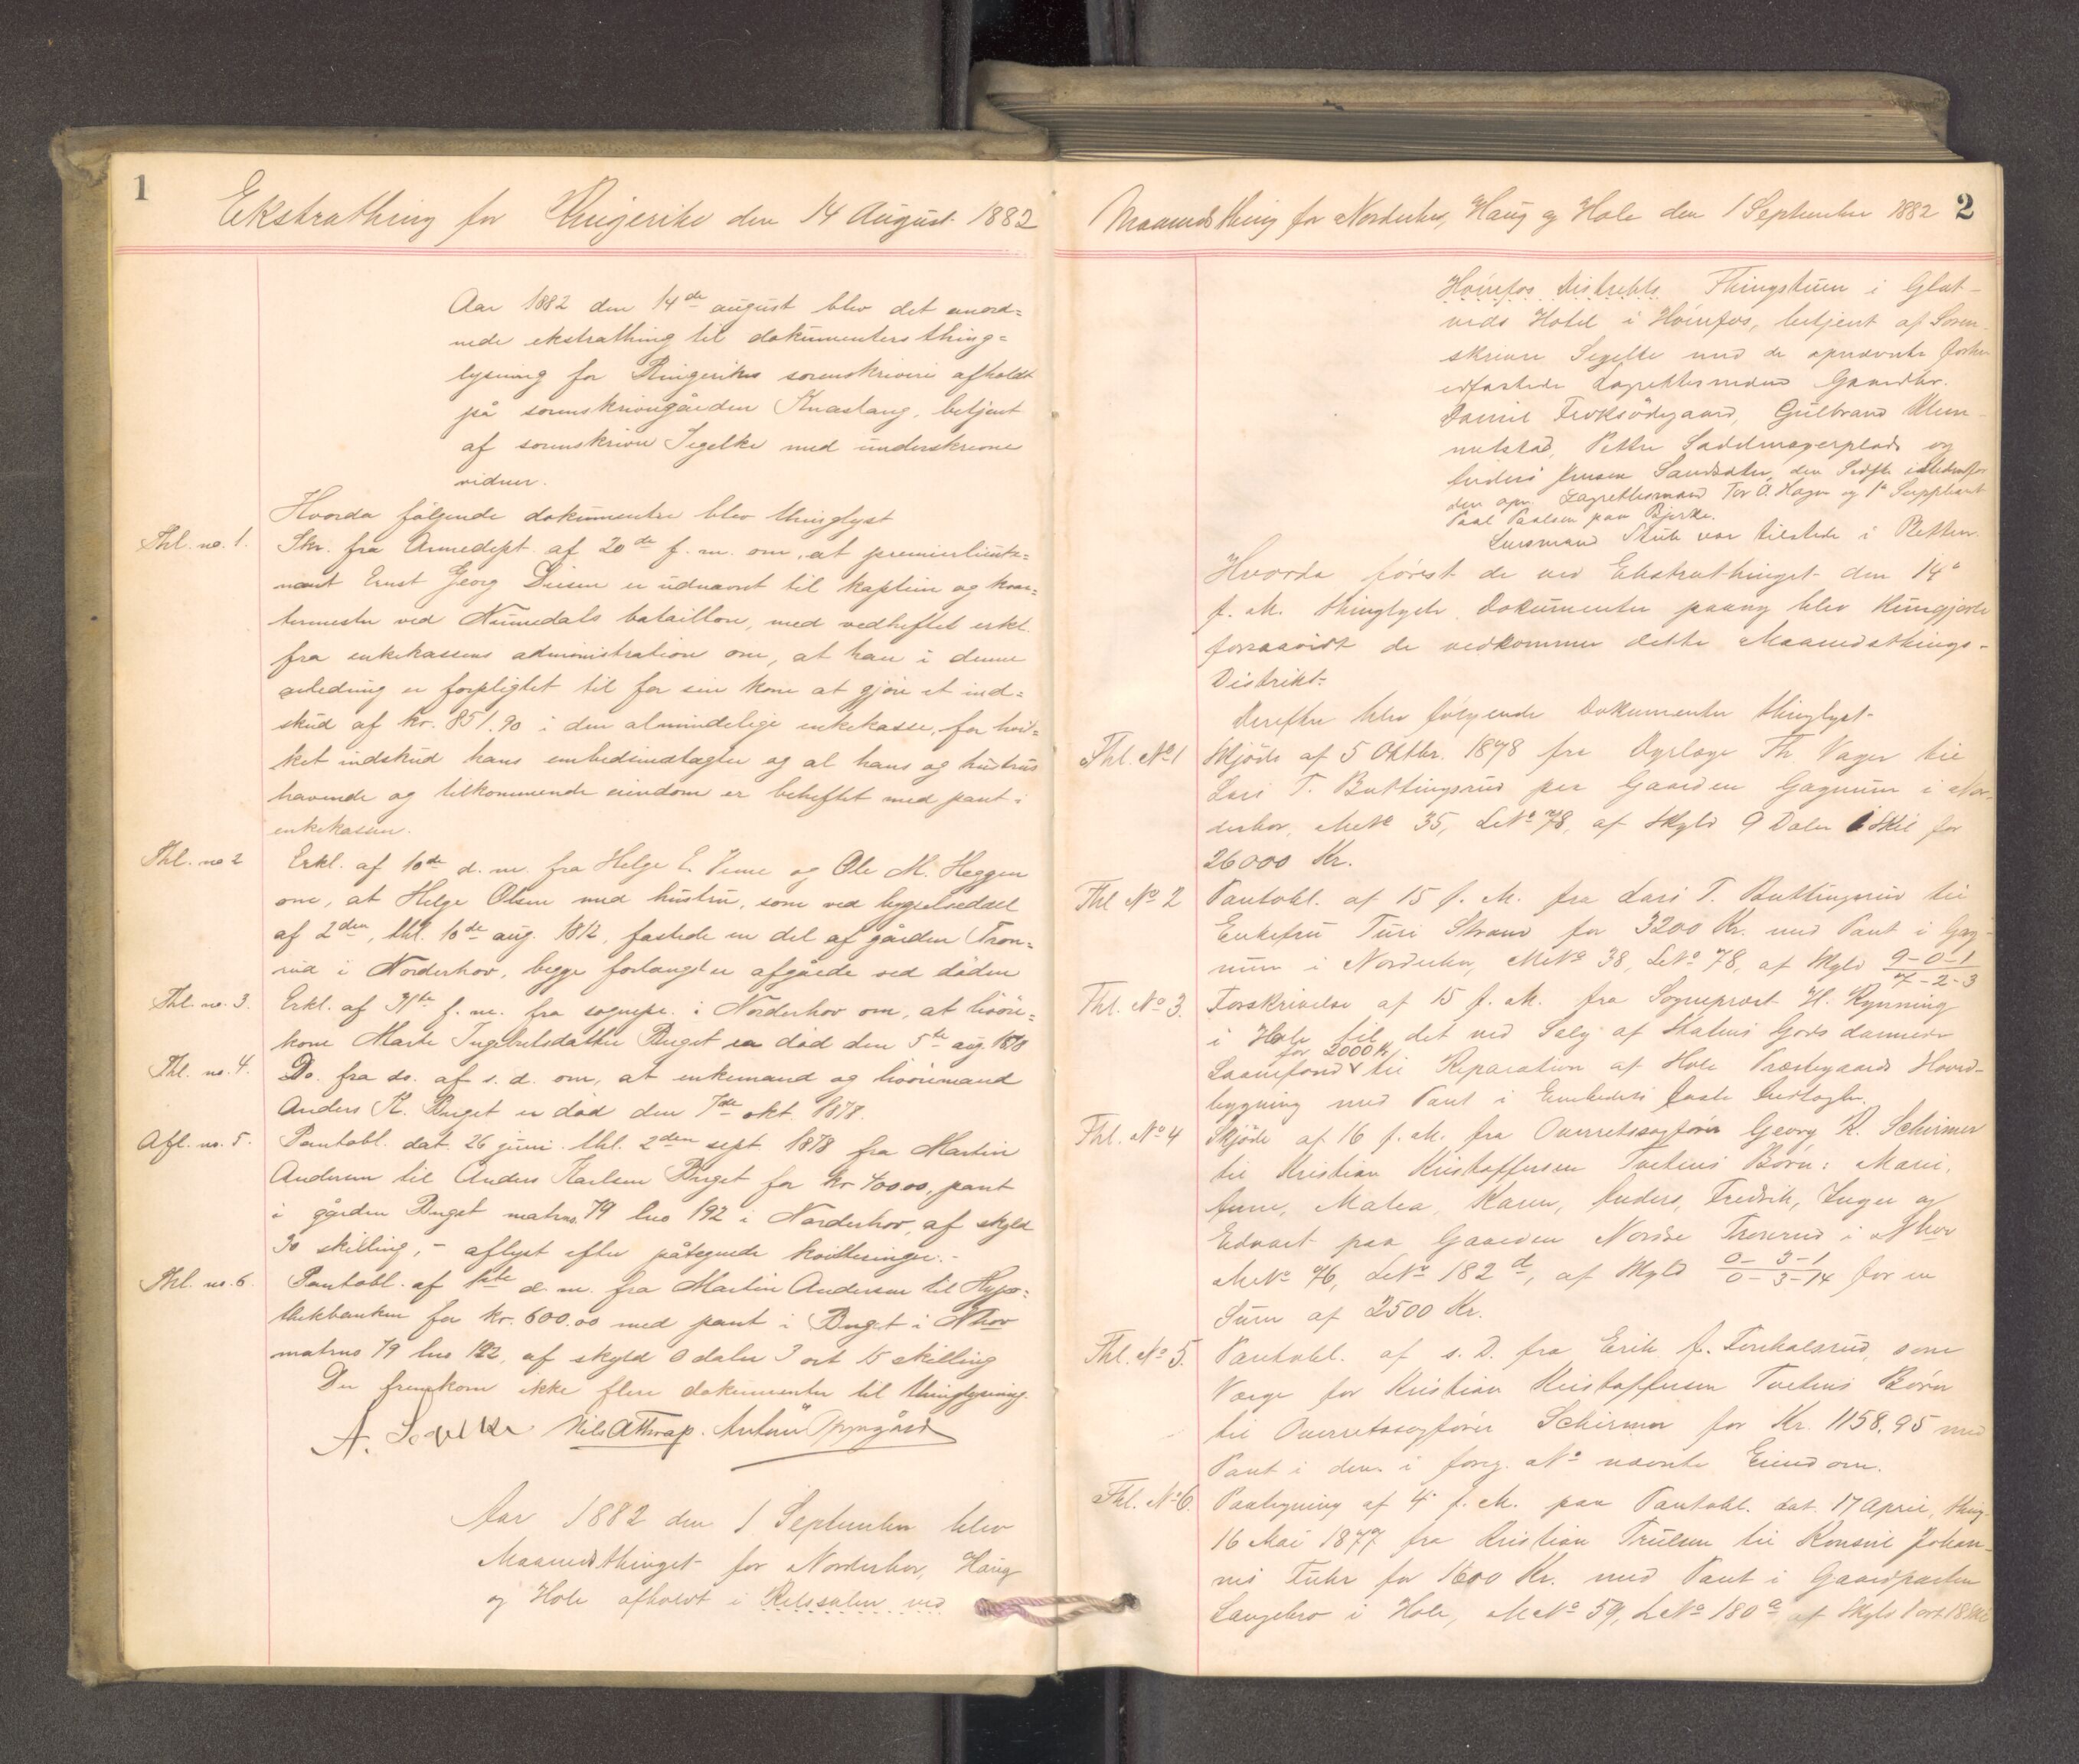 1
Ekstrathing for Ringerike den 14 August 1882
Aar 1882 den 14de august blev det anord=
nede ekstrathing til dokumenters thing=
lysning for Ringerikes sorenskriveri afholdt
på sorenskrivergården Knastang, betjent
af sorenskriver Segelke med underskrevne
vidner.
Hvorda følgende dokumenter blev thinglyst
Thl. no. 1. Skr. fra Armedept. af 20de f. m. om, at premierliøite=
nant Ernst Georg er udnævnt til kaptein og kvar=
termester ved Numedals bataillon, med vedheftet erkl.
fra enkekassens administration om, at han i denne
anledning er forpligtet til for sin kone at gjøre et ind=
skud af kr. 851.90 i den almindelige enkekasse, for hvil=
ket indskud hans embedsindtægter og al hans og hustrus
havende og tilkommende eiendom er beheftet med pant i
enkekassen.
Thl. no 2 Erkl. af 10de d. m. fra Helge E. Veme og Ole M. Heggen
om, at Helge Olsen med hustru, som ved bygselseddel
af 2den, thl. 10de aug. 1812, fæstede en del af gården Tron=
rud i Norderhov, begge forlængst er afgåede ved døden
Thl. no. 3. Erkl. af 31te f. m. fra sognepr. i Norderhov om, at livøre=
kone Marte Ingebretsdatter Ruget er død den 5te aug. 1870
Thl. no. 4. Do. fra do. af s. d. om, at enkemand og livøremand
Anders K. Ruget er død den 7de okt. 1878.
Afl. no. 5. Pantobl. dat. 26 juni thl. 2den sept. 1878 fra Martin
Andersen til Anders Karlsen Ruget for kr 400.00, pant
i gården Ruget matrno. 79 lno 192 i Norderhov, af skyld
30 skilling, - aflyst efter påtegnede kvitteringer. -
Thl. no. 6. Pantobl. af d. m. fra Martin Andersen til Hypo=
thekbanken for kr. 600.00 med pant i Ruget i Nhov
matrno 79 lno 192, af skyld 0 daler 3 ort 15 skilling
Der fremkom ikke flere dokumenter til thinglysning.
A. Segelke Nils Anton
Aar 1882 den 1 September blev
Maanedsthinget for Norderhov, Haug
og Hole afholdt i Retssalen ved
Maanedsthing for Norderhov, Haug og Hole den 1 September 1882 2
Hønefos Distrikts Thingstuen i Glat-
veds Hotel i Hønefos, betjent af Soren-
skriver Segelke med de opnævnte forhen
edfæstede Lagrettesmænd Gaardbr.
Daniel Froksødegaard, Gulbrand Klem-
metstad, Petter Saddelmagerplads og
Anders Jensen den Sidste istedenfor
den opn. Lagrettesmand Tor O. Hagen og 1ste Suppleant
Paal Paalsen paa Bjerke.
Lensmand Stub var tilstede i Retten
Hvorda først de ved Ekstrathinget den 14de
f. M. thinglyste Dokumenter paany blev kundgjorte
forsaavidt de vedkommer dette Maanedsthings-
Distrikt.
Derefter blev følgende Dokumenter thinglyst
Thl. No 1 Skjøde af 5 Oktbr. 1878 fra Dyrlæge Th. Vager til
Lars T. Buttingsrud paa Gaarden Gagnum i Nor-
derhov, MNo 35, LNo 78, af Skyld 9 Daler 1 Skil for
26000 Kr.
Thl No 2 Pantobl. af 15 f. M. fra Lars T. Buttingsrud til
Enkefru Turi Strand for 3200 Kr. med Pant i Gag-
num i Norderhov, MNo 38, LNo 78, af Skyld 9-0-1
7-2-3
Thl. No 3. Forskrivelse af 15 f. M. fra Sogneprest H. Rynning
i Hole til det ved Salg af Statens Gods dannede
for 2000 Kr
Laanefond til Reparation af Hole Præstegaards Hoved-
bygning med Pant i Embedets faste Indtægter.
Thl. No 4 Skjøde af 16 f. M. fra Overretssagfører Georg R. Schirmer
til Kristian Kristoffersen Tvetens Børn: Marie,
Anne, Matea, Karen, Anders, Fredrik, Inger og
Edvart paa Gaarden Nordre Tronrud i Nhov
MNo 76, LNo 182 d, af Skyld 0-3-1
0-3-14 for en
Sum af 2500 Kr.
Thl. No 5. Pantobl. af s. D. fra Erik A. Fenkalsrud, som
Værge for Kristian Kristoffersen Tvetens Børn
til Overretssagfører Schirmer for Kr. 1158.95 med
Pant i den i foreg. No nævnte Eiendom.
Thl. No 6. Paategning af 4de f. M. paa Pantobl. dat. 17 April, thing.
16 Mai 1877 fra Kristian Trulsen til Konsul Johan-
nes Fuhr for 1600 Kr. med Pant i Gaardparten
Langebro i Hole, MNo 59, LNo 180 a af Skyld 1 ort 18 Skil